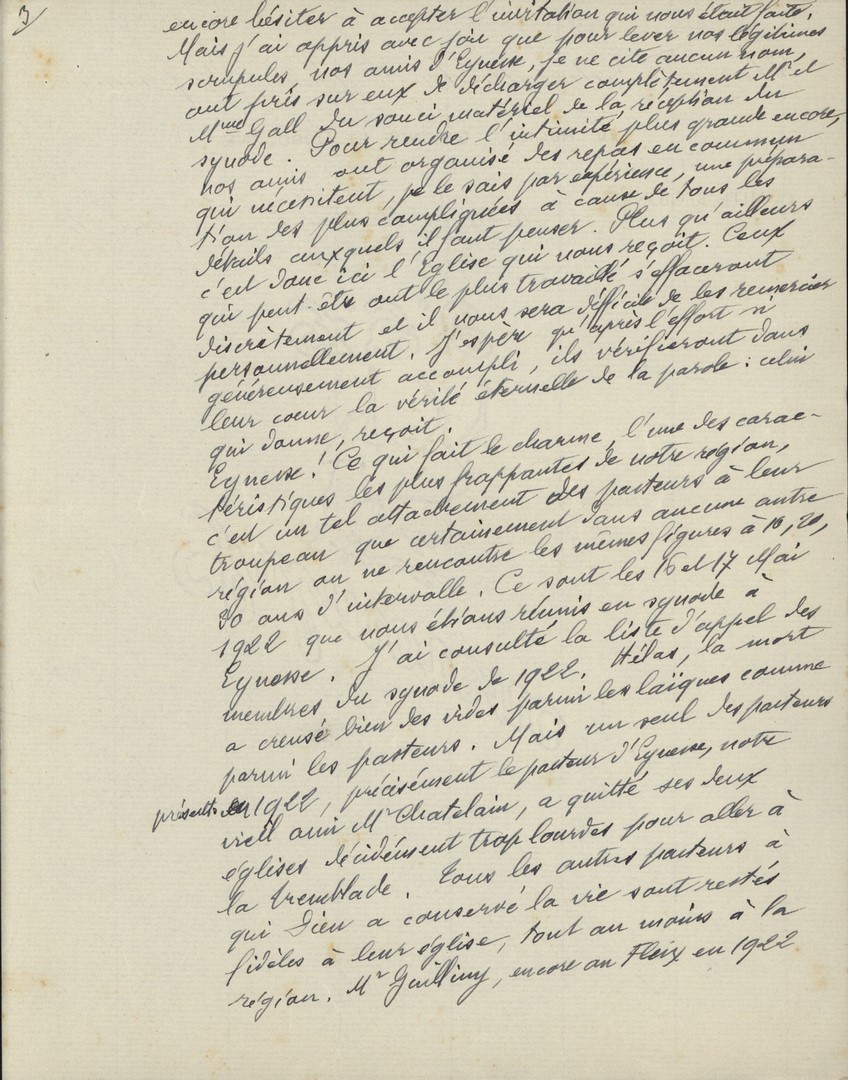 3
encore hésiter à accepter l'invitation qui nous était faite.
Mais j'ai appris avec joie que pour lever nos légitimes
scrupules, nos amis d'Eynesse, je ne cite aucun nom,
ont pris sur eux de décharger complètement Mr et
Mme Gall du souci matériel de la réception du
synode. Pour rendre l'intimité plus grande encore,
nos amis ont organisé des repas en commun
qui nécessitent, je le sais par expérience, une prépara-
tion des plus compliquées à cause de tous les
détails auxquels il faut penser. Plus qu'ailleurs
c'est donc ici l'Eglise qui nous reçoit. Ceux
qui peut-être ont le plus travaillé s'effaceront
discrètement et il nous sera difficile de les remercier
personnellement. J'espère qu'après l'effort si
généreusement accompli, ils vérifieront dans
leur coeur la vérité éternelle de la parole : celui
qui donne, reçoit.
Eynesse ! Ce qui fait le charme, l'une des carac-
téristiques les plus frappantes de notre région,
c'est un tel attachement des pasteurs à leur
troupeau que certainement dans aucune autre
région on ne rencontre les mêmes figures à 10, 20,
30 ans d'intervalle. Ce sont les 16 et 17 Mai
1922 que nous étions réunis en synode à
Eynesse. J'ai consulté la liste d'appel des
membres du synode de 1922. Hélas, la mort
a creusé bien des vides parmi les laïques comme
parmi les pasteurs. Mais un seul des pasteurs
présents en 1922, précisément le pasteur d'Eynesse, notre
vieil ami Mr Chatelain, a quitté ses deux
églises décidément trop lourdes pour aller à
la Tremblade. Tous les autres pasteurs à
qui Dieu a conservé la vie sont restés
fidèles à leur église, tout au moins à la
région. Mr Guilliny, encore au Fleix en 1922